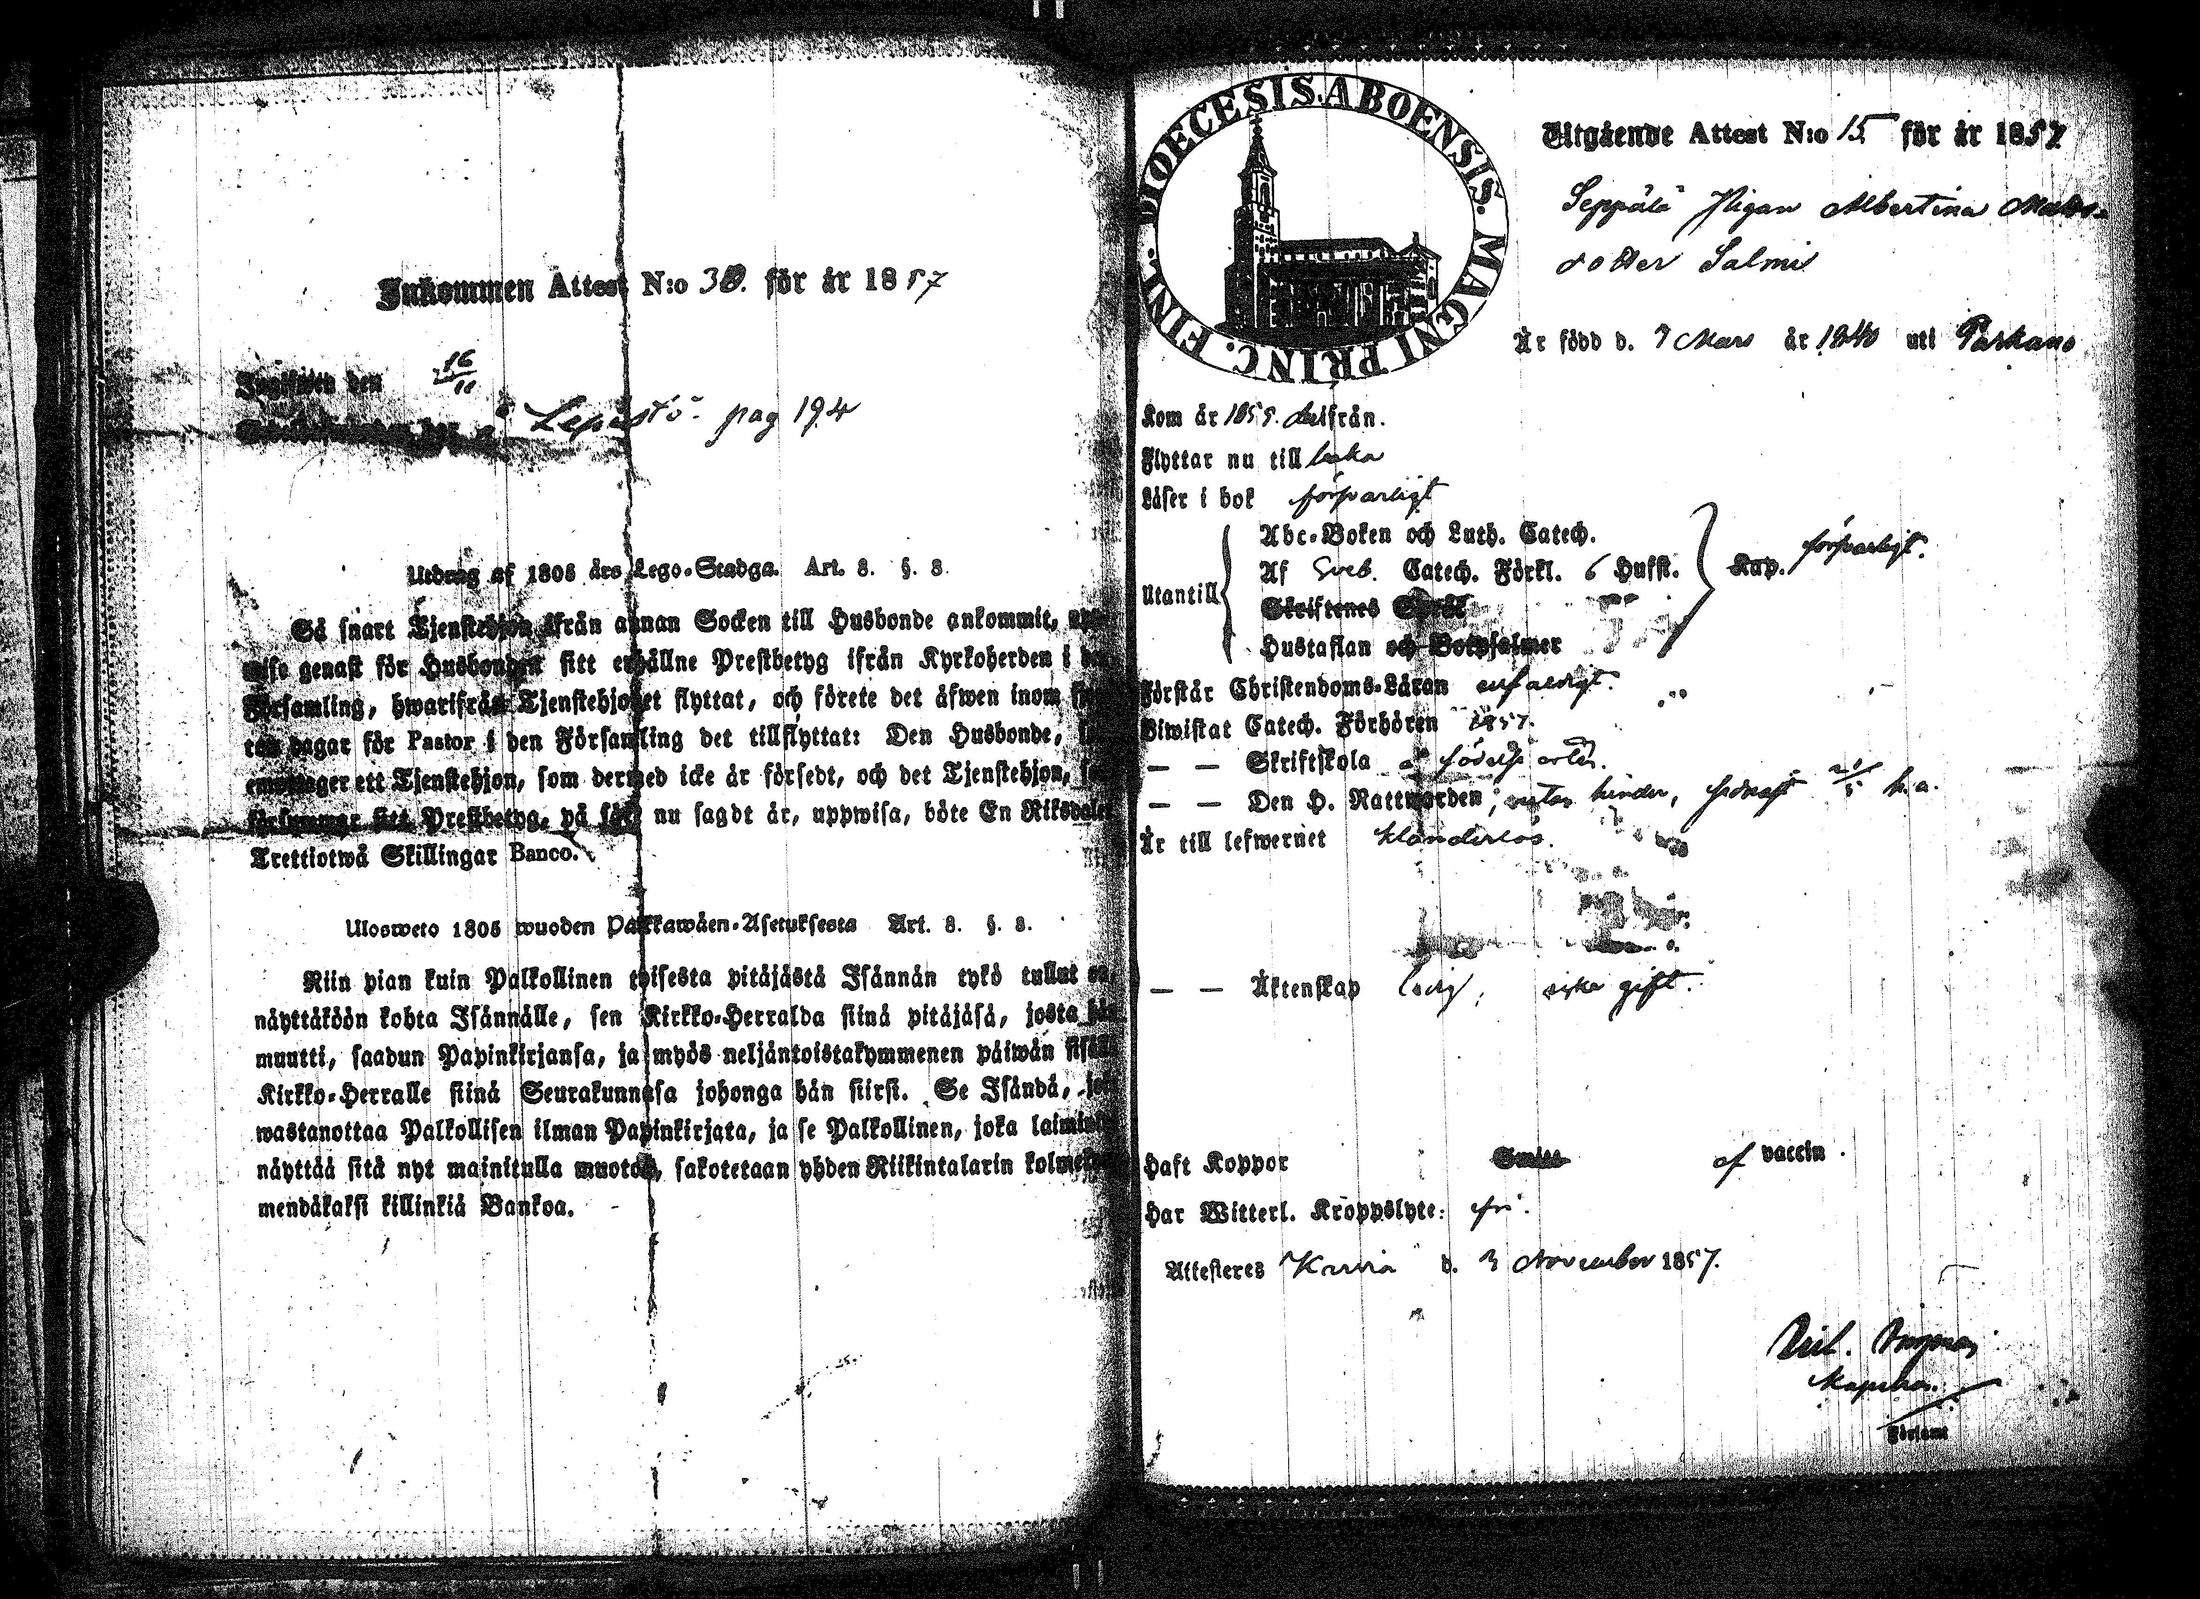 Inkommen Attest N:o 30. för år 1857
Ingifwen den 16/11
Lepistö pag 194
Utdrag af 1805 års Lego-Stadga. Art. 8. §. 8.
Så snart Tjenstehjon ifrån annan Socken till Husbonde ankommit,
genast för Husbonden sitt erhållne Prestbetyg ifrån Kyrkoherden i
Församling, hwarifrån Tjenstehjonet flyttat, och förete det äfwen inom
dagar för Pastor i den Församling det tillflyttat: Den Husbonde,
emottager ett Tjenstehjon, som dermed icke är försedt, och det Tjenstehjon,
försummar sitt Prestbetyg, på sätt nu sagdt är, uppwisa, böte En Riksdaler
Trettiotwå Skillingar Banco.
Ulosweto 1805 wuoden Palkkawäen-Asetuksesta Art. 8. §. 8.
Niin pian kuin Palkollinen toisesta pitäjästä Isännän tykö tullut on,
näyttäköön kohta Isännälle, sen Kirkko-Herralda siinä pitäjäsä, josta hän
muutti, saadun Papinkirjansa, ja myös neljäntoistakymmenen päiwän sisällä
Kirkko-Herralle siinä Seurakunnasa johonga hän siirsi. Se Isändä,
wastanottaa Palkollisen ilman Papinkirjata, ja se Palkollinen, joka
näyttää sitä nyt mainitulla muotoa, sakotetaan yhden Riikintalarin
mendäkaksi killinkiä Bankoa.
DIOECESIS. ABOENSIS. MAGNI PRINC. FINL.
Utgående Attest N:o 15 för år 1857
Seppälä Pigan Albertina Mats-
dotter Salmi
Är född d. 7 Mars år 1840 uti Parkano
Kom år 1855. ifrån.
Flyttar nu till
Läser i bok förswarligt
Abc-Boken och Luth. Catech.
Utantill Af Sveb. Catech. Förkl. 6 Hufst. Kap. förswarligt.
Skriftenes Språk
Hustaflan och Botpsalmer
Förstår Christendoms-Läran enfaldigt.
Biwistat Catech. Förhören 1857.
— — Skriftskola födelse orten.
— — Den H. Nattwarden; utan hinder, h. a.
Är till lefwernet klanderlös.
— — Äktenskap ledig, gift.
Haft Koppor Smitt af vaccin.
Har Witterl. Kroppslyte: fri.
Attesteras Karvia d. 3 November 1857.